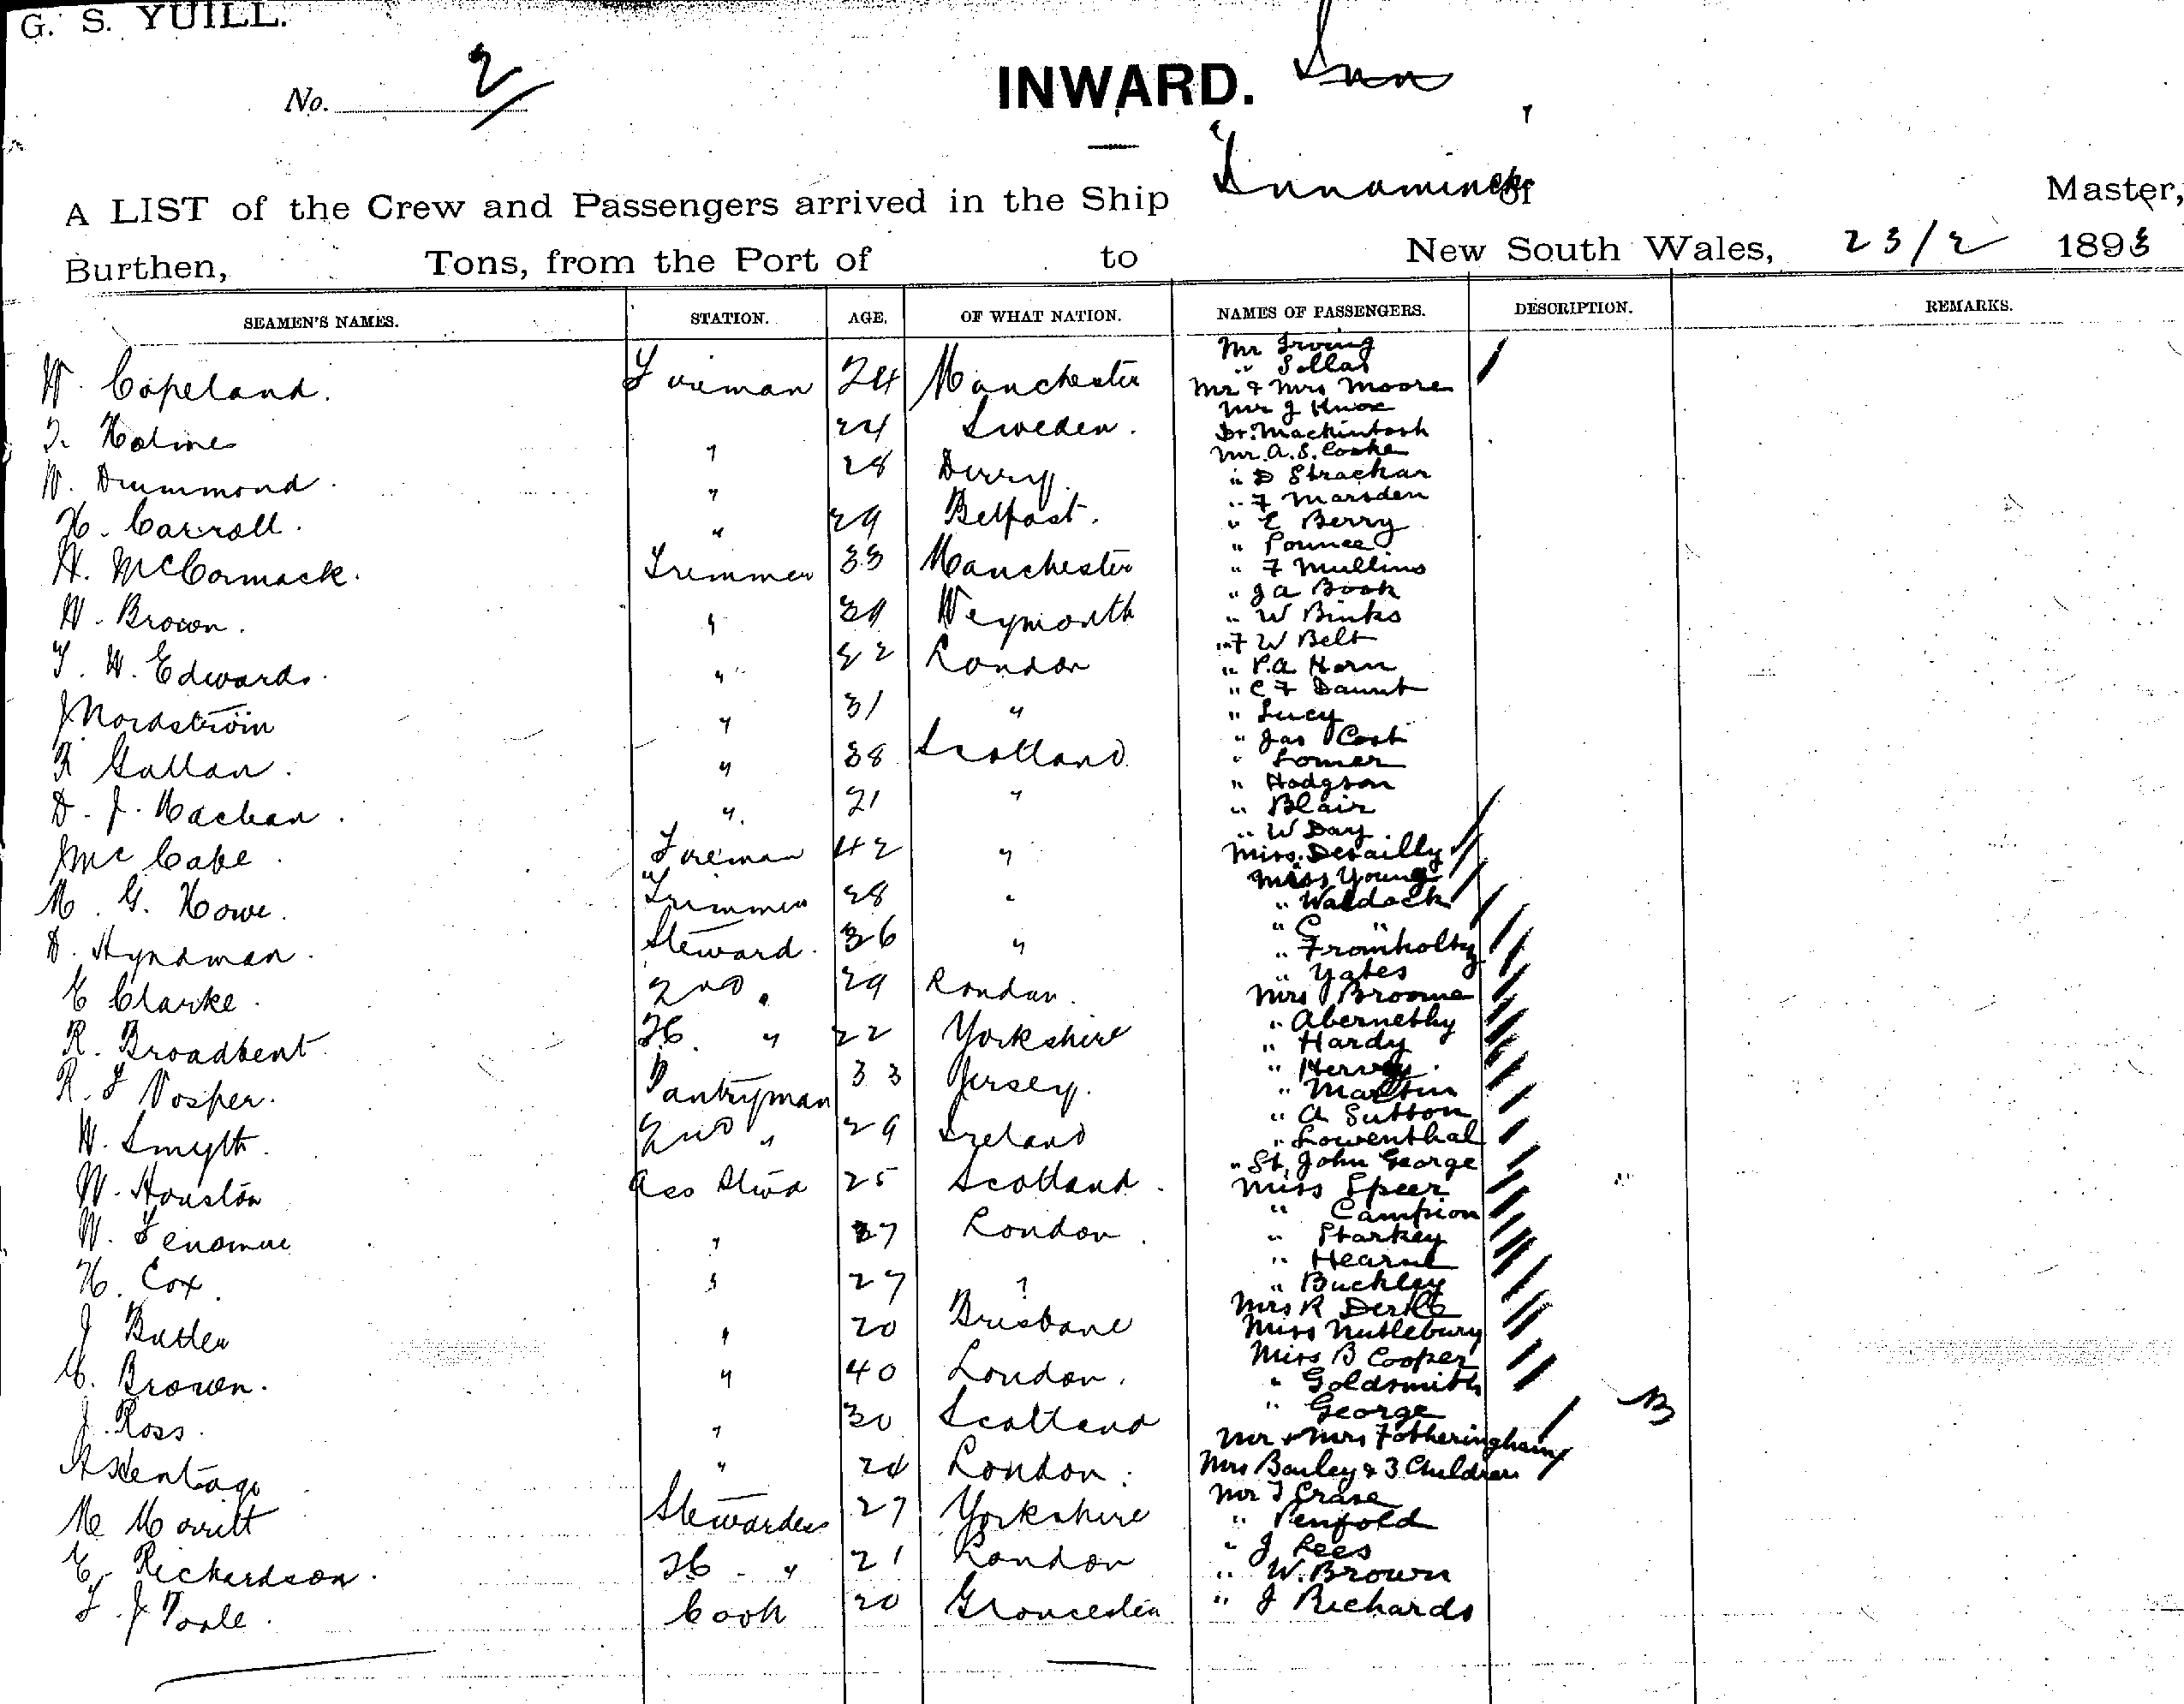 G. S. YUILL.
No. 2/
INWARD.
"Innamincka
A LIST of the Crew and Passengers arrived in the Ship of Master,
Burthen, Tons, from the Port of to New South Wales, 23/2 1893
SEAMEN'S NAMES. STATION. AGE. OF WHAT NATION. NAMES OF PASSENGERS. DESCRIPTION. REMARKS.
W. Copeland. Fireman 24 Manchester
Holme 24 Sweden.
W. Drummond. " 28 Derry
H. Carroll. " 29 Belfast.
H. McCormack. Trimmer 33 Manchester
W. Brown. " Weymouth
T. W. Edwards. " 22 London
J Nordström " 31 "
R Gallan. " 38 Scotland
D. J. " 21 "
J McCabe Fireman 42 "
M. G. Howe. Trimmer 28 "
D. Hyndman. Steward. 36 "
E Clarke. 2nd " 29 London.
R. Broadbent " 22 Yorkshire
R. J Vosper. Pantryman 33 Jersey.
W. Smyth. 2nd " 29 Ireland
W. Houston 25 Scotland.
W. " 27 London.
H. Cox. " 27 "
J Butler " 20 Brisbane
Brown. " 40 London.
J. Ross. " 30 Scotland
" 24 London.
M Stewardess 27 Yorkshire
E. Richardson. " 21 London
J Cook 20 Gloucester
Mr Irving
" Sollas
Mr & Mrs Moore
Mr J Knox
Dr. Mackintosh
Mr. A. S. Cooke
" D Strachan
" F Marsden
" E Berry
" Pounce
" F Mullins
" J A Book
" W Binks
" F W Belt
" P. A Horn
" C F Daunt
" Lucy
" Jas Cost
" Lomer
" Hodgson
" Blair
" W Day
Miss Desailly
Miss Young
" Waldock
" C "
" Fromholtz
" Yates
Mrs Broome
" Abernethy
" Hardy
" Hervey
" Martin
" A Sutton
" Lowenthal
" St. John George
Miss Speer
" Campion
" Starkey
" Hearne
" Buckley
Mrs R
Miss Nuttlebury
Miss B Cooper
" Goldsmith
" George
Mr & Mrs Fotheringham
Mrs & 3 Children
Mr J Crase
" Penfold
" J Lees
" W. Brown
" J Richards